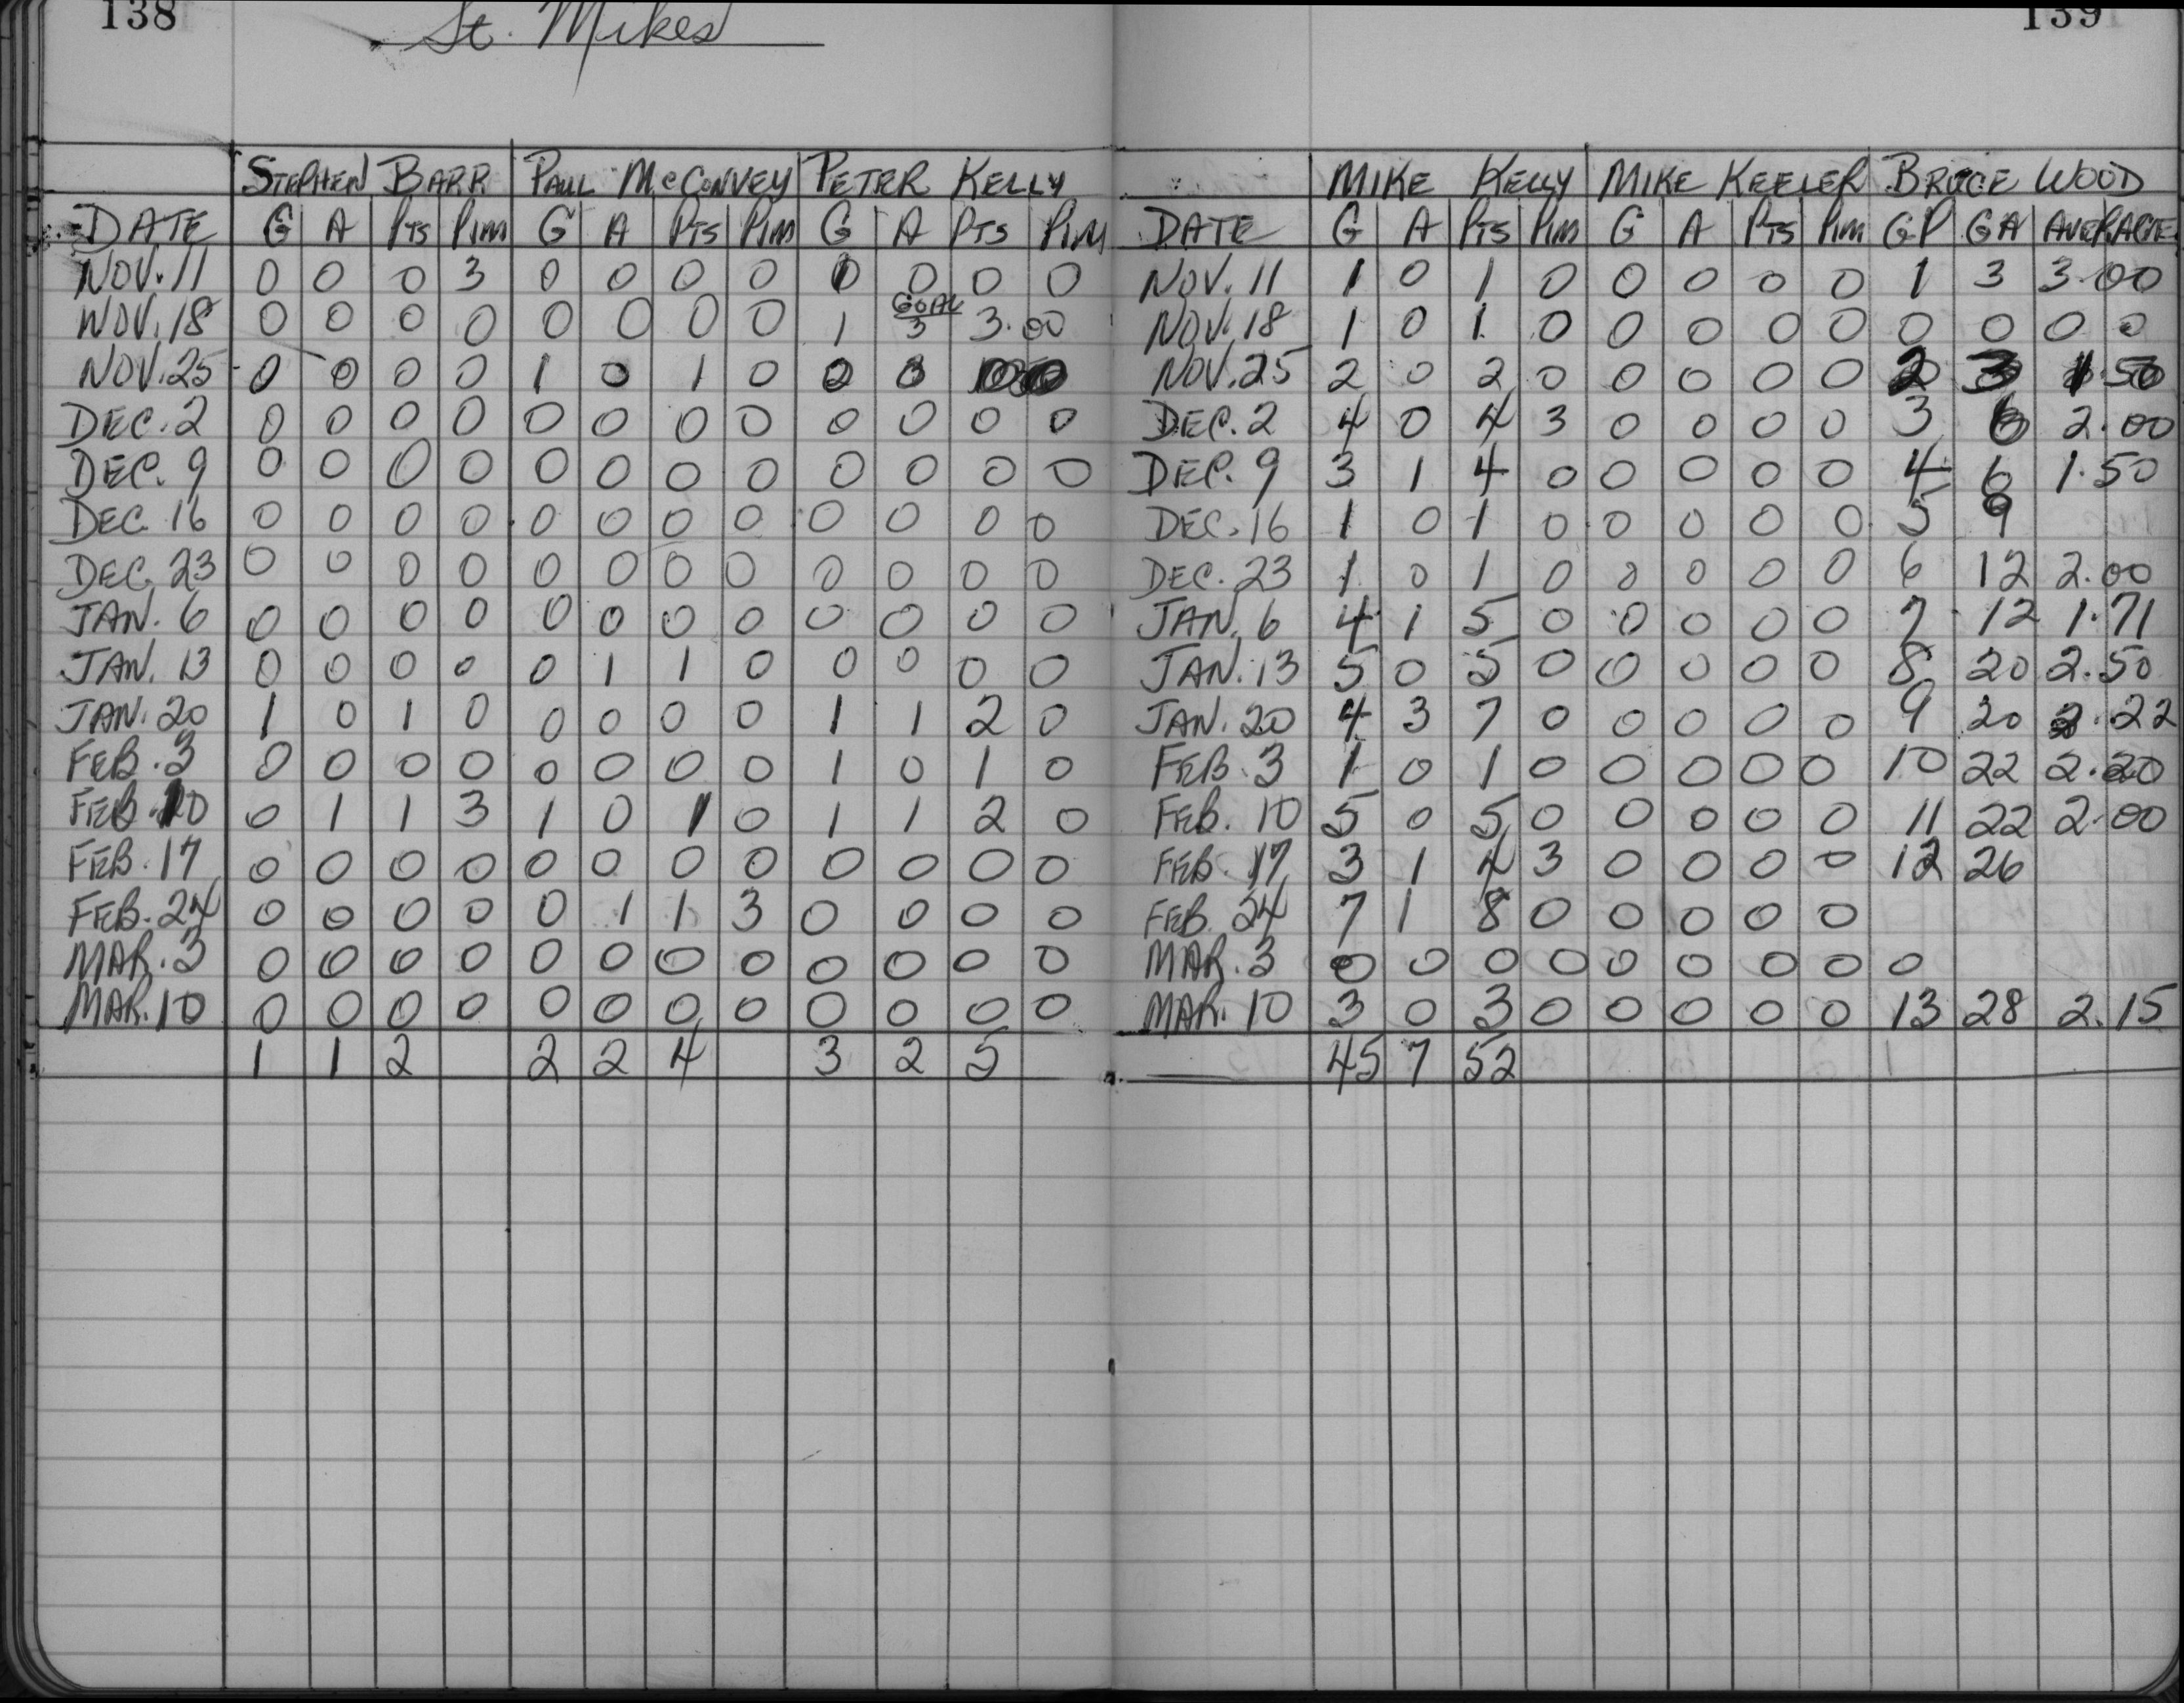 138
St. Mikes
STEPHEN BARR PAUL McCONVEY PETER KELLY
DATE G A PTS PIM G A PTS PIM G A PTS PIM
NOV. 11 0 0 0 3 0 0 0 0 0 0 0 0
GOAL
NOV. 18 0 0 0 0 0 0 0 0 1 3 3.00
NOV. 25 0 0 0 0 1 0 1 0 0 0
DEC. 2 0 0 0 0 0 0 0 0 0 0 0 0
DEC. 9 0 0 0 0 0 0 0 0 0 0 0 0
DEC 16 0 0 0 0 0 0 0 0 0 0 0 0
DEC. 23 0 0 0 0 0 0 0 0 0 0 0 0
JAN. 6 0 0 0 0 0 0 0 0 0 0 0 0
JAN. 13 0 0 0 0 0 1 1 0 0 0 0 0
JAN. 20 1 0 1 0 0 0 0 0 1 1 2 0
FEB. 3 0 0 0 0 0 0 0 0 1 0 1 0
FEB. 10 0 1 1 3 1 0 1 0 1 1 2 0
FEB. 17 0 0 0 0 0 0 0 0 0 0 0 0
FEB. 24 0 0 0 0 0 1 1 3 0 0 0 0
MAR. 3 0 0 0 0 0 0 0 0 0 0 0 0
MAR. 10 0 0 0 0 0 0 0 0 0 0 0 0
1 1 2 2 2 4 3 2 5
139
MIKE KELLY MIKE KEELER BRUCE WOOD
DATE G A PTS PIM G A PTS PIM GP GA AVERAGE
NOV. 11 1 0 1 0 0 0 0 0 1 3 3.00
NOV. 18 1 0 1 0 0 0 0 0 0 0 0 0
NOV. 25 2 0 2 0 0 0 0 0 2 3 1.50
DEC. 2 4 0 4 3 0 0 0 0 3 6 2.00
DEC. 9 3 1 4 0 0 0 0 0 4 6 1.50
DEC. 16 1 0 1 0 0 0 0 0 5 9
DEC. 23 1 0 1 0 0 0 0 0 6 12 2.00
JAN. 6 4 1 5 0 0 0 0 0 7 12 1.71
JAN. 13 5 0 5 0 0 0 0 0 8 20 2.50
JAN. 20 4 3 7 0 0 0 0 0 9 20 2.22
FEB. 3 1 0 1 0 0 0 0 0 10 22 2.20
FEB. 10 5 0 5 0 0 0 0 0 11 22 2.00
FEB. 17 3 1 4 3 0 0 0 0 12 26
FEB. 24 7 1 8 0 0 0 0 0
MAR. 3 0 0 0 0 0 0 0 0 0
MAR. 10 3 0 3 0 0 0 0 0 13 28 2.15
45 7 52